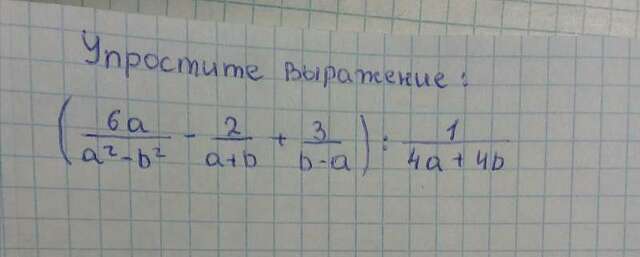 Упростите выражение:
(6a/(a²-b²) - 2/(a+b) + 3/(b-a)) : 1/(4a+4b)